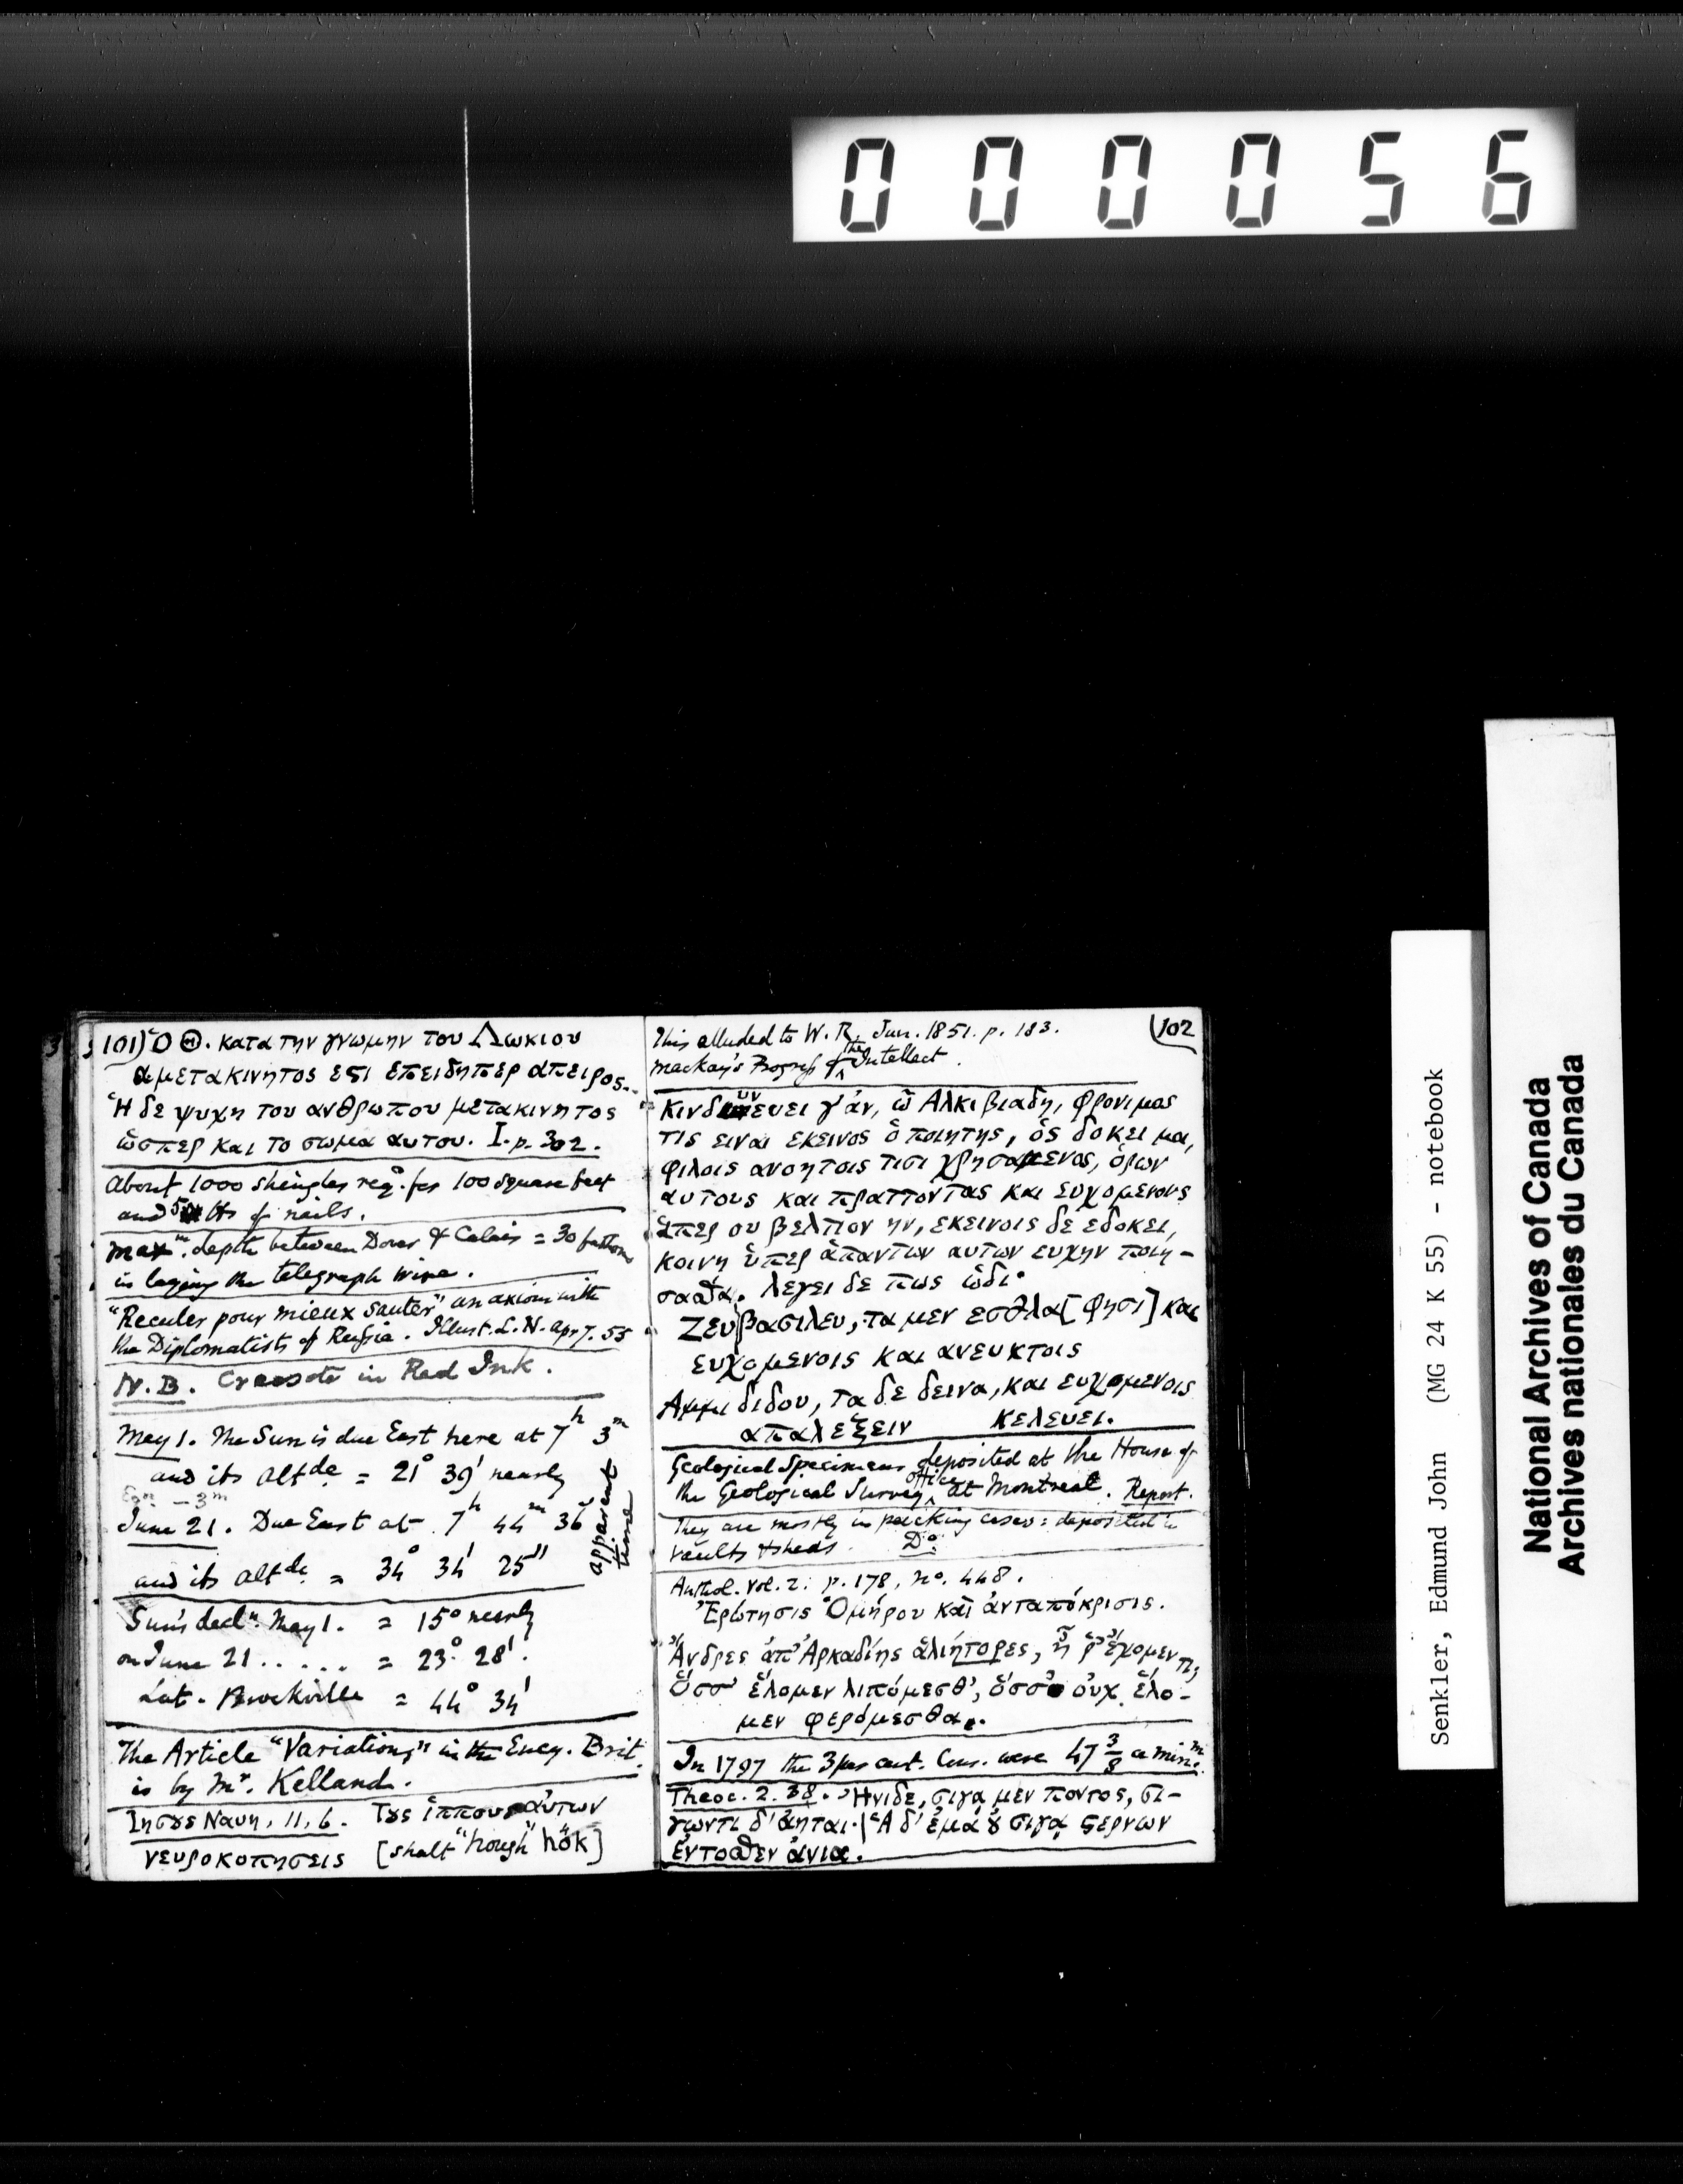 000056
101) Ὁ Θ. κατα την γνωμην του Λωκιου
αμετακινητος εϛι επειδηπερ απειρος..
Ἡ δε ψυχη του ανθρωπου μετακινητος
ὡσπερ και το σωμα αυτου. I. p. 302.
About 1000 shingles reqd. for 100 square feet
and 5 lbs of nails.
Maxm. depth between Dover & Calais = 30 fathoms
in laying the telegraph wire.
"Reculer pour mieux sauter" an axiom with
the Diplomatists of Russia. Illust. L. N. Apr 7. 55
N.B. Creosote in Red Ink.
May 1. The Sun is due East here at 7h 3m
and its altde = 21° 39' nearly
Eqn. - 3m
June 21. Due East at 7h 44m 36s
and its altde. = 34° 34' 25"
apparent
time
Sun's decln. May 1. = 15° nearly
on June 21 . . . . . = 23° 28'.
Lat. Brockville = 44° 34'
The Article "Variations" in the Ency. Brit.
is by Mr. Kelland.
Ιησȣς Ναυη, 11, 6. Τȣς ἱππους αὐτων
νευροκοπησεις [shalt "hough" hŏk]
102
This alluded to W. R. Jan. 1851. p. 183.
Mackay's Progress of the Intellect.
Κινδυνευει γ' ἀν, ὦ Αλκιβιαδη, φρονιμος
τις ειναι εκεινος ὁ ποιητης, ὁς δοκει μοι,
φιλοις ανοητοις τισι χρησαμενος, ὁρων
αυτους και πραττοντας και ευχομενους
ἁπερ ου βελτιον ην, εκεινοις δε εδοκει,
κοινη ὑπερ ἁπαντων αυτων ευχην ποιη-
σασθαι. λεγει δε πως ὡδι·
Ζευ βασιλευ, τα μεν εσθλα [φησι] και
ευχομενοις και ανευκτοις
Αμμι διδου, τα δε δεινα, και ευχομενοις
απαλεξειν κελευει.
Geological Specimens deposited at the House of
the Geological Survey office at Montreal. Report.
They are mostly in packing cases: deposited in
vaults & sheds. Do.
Anthol. vol. 2: p. 178, no. 448.
Ἐρώτησις Ὁμήρου καὶ ἀνταπόκρισις.
Ἄνδρες ἀπ' Ἀρκαδίης ἁλιήτορες, ἦ ῥ' ἔχομεν τι;
Ὅσσ' ἕλομεν λιπόμεσθ', ὅσσ' οὐχ ἕλο-
μεν φερόμεσθα.
In 1797 the 3 per cent. Cons. were 47 3/8 a minm.
Theoc. 2. 38. Ἠνιδε, σιγᾳ μεν ποντος, σι-
γωντι δ' ἀηται. | Ἁ δ' ἐμὰ ȣ σιγᾳ ϛερνων
ἐντοσθεν ἀνια.
Senkler, Edmund John (MG 24 K 55) - notebook
National Archives of Canada
Archives nationales du Canada